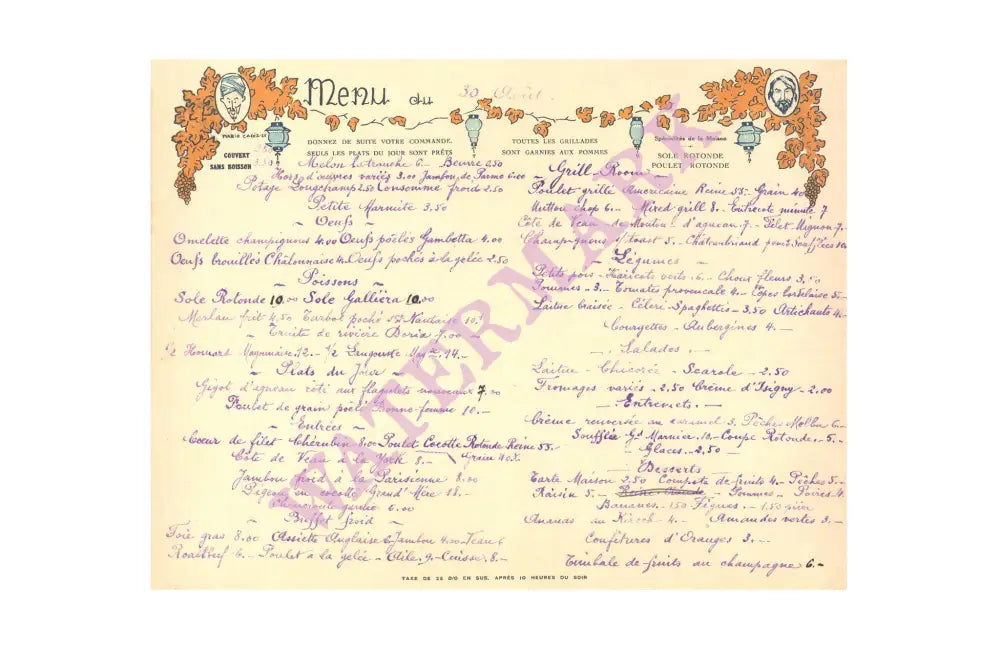 Menu du 30 Août
MARIO CADIZ-25
COUVERT
3.50
SANS BOISSON
DONNEZ DE SUITE VOTRE COMMANDE.
SEULS LES PLATS DU JOUR SONT PRÊTS
Melon la tranche 6 - Beurre 2.50
Hors d'œuvres variés 3.00 Jambon de Parme 6.00
Potage Longchamp 2.50 Consommé froid 2.50
Petite Marmite 3.50
- Oeufs -
Omelette champignons 4.00 Oeufs poêlés Gambetta 4.00
Oeufs brouillés Châlonnaise 4. Oeufs pochés à la gelée 2.50
- Poissons -
Sole Rotonde 10.00 Sole Galliéra 10.00
Merlan frit 4.50 Turbot poché Nantaise
Truite de rivière Doria 7.00 -
1/2 Homard Mayonnaise 12.- 1/2 Langouste 14.-
- Plats du Jour -
Gigot d'agneau rôti aux flageolets nouveaux 7.00
Poulet de grain poêlé Bonne-femme 10.-
- Entrées -
Coeur de filet Chérubin 8.00 Poulet Cocotte Rotonde Reine 55.-
Côte de Veau à la York 8.- Grain 40
Jambon froid à la Parisienne 8.00
Pigeon en cocotte Grand'Mère 18.-
Choucroute garnie 6.00
- Buffet froid -
Foie gras 8.00 Assiette Anglaise 6 Jambon 4.00
Roastbeef 6.- Poulet à la gelée - Aile 9.- Cuisse 8.-
TOUTES LES GRILLADES
SONT GARNIES AUX POMMES
Spécialités de la Maison
SOLE ROTONDE
POULET ROTONDE
- Grill Room -
Poulet grillé Américaine Reine 55.- Grain 40
Mutton chop 6.- Mixed grill 8.- Entrecote minute 7
Côte de Veau - de Mouton - d'agneau 7.- Filet Mignon 7.-
Champignons s/toast 5.- Châteaubriand pommes soufflées
- Légumes -
Petits pois - Haricots verts 6.- Choux fleurs 3.50
Pommes - 3 - Tomates provençale 4.- Cèpes bordelaise 5.-
Laitue braisée - Céleri - Spaghettis - 3.50 Artichauts 4.-
Courgettes - Aubergines 4.-
- Salades -
Laitue - Chicorée - Scarole - 2.50
Fromages variés - 2.50 Crème d'Isigny - 2.00
- Entremets -
Crème renversée au caramel 3. Pêche Melba 6.-
Soufflée Gd Marnier 12.- Coupe Rotonde - 5.-
- Glaces - 2.50 -
Desserts
Tarte Maison 2.50 Compote de fruits 4.- Pêches 5.-
Raisin 5.- Pommes - Poires 4.
Bananes - 1.50 Figues - 1.50 pièce
Ananas au Kirsch - 4.- Amandes vertes 3.-
Confitures d'Oranges 3.-
Timbale de fruits au champagne 6.-
TAXE DE 25 0/0 EN SUS, APRÈS 10 HEURES DU SOIR
WATERMARK